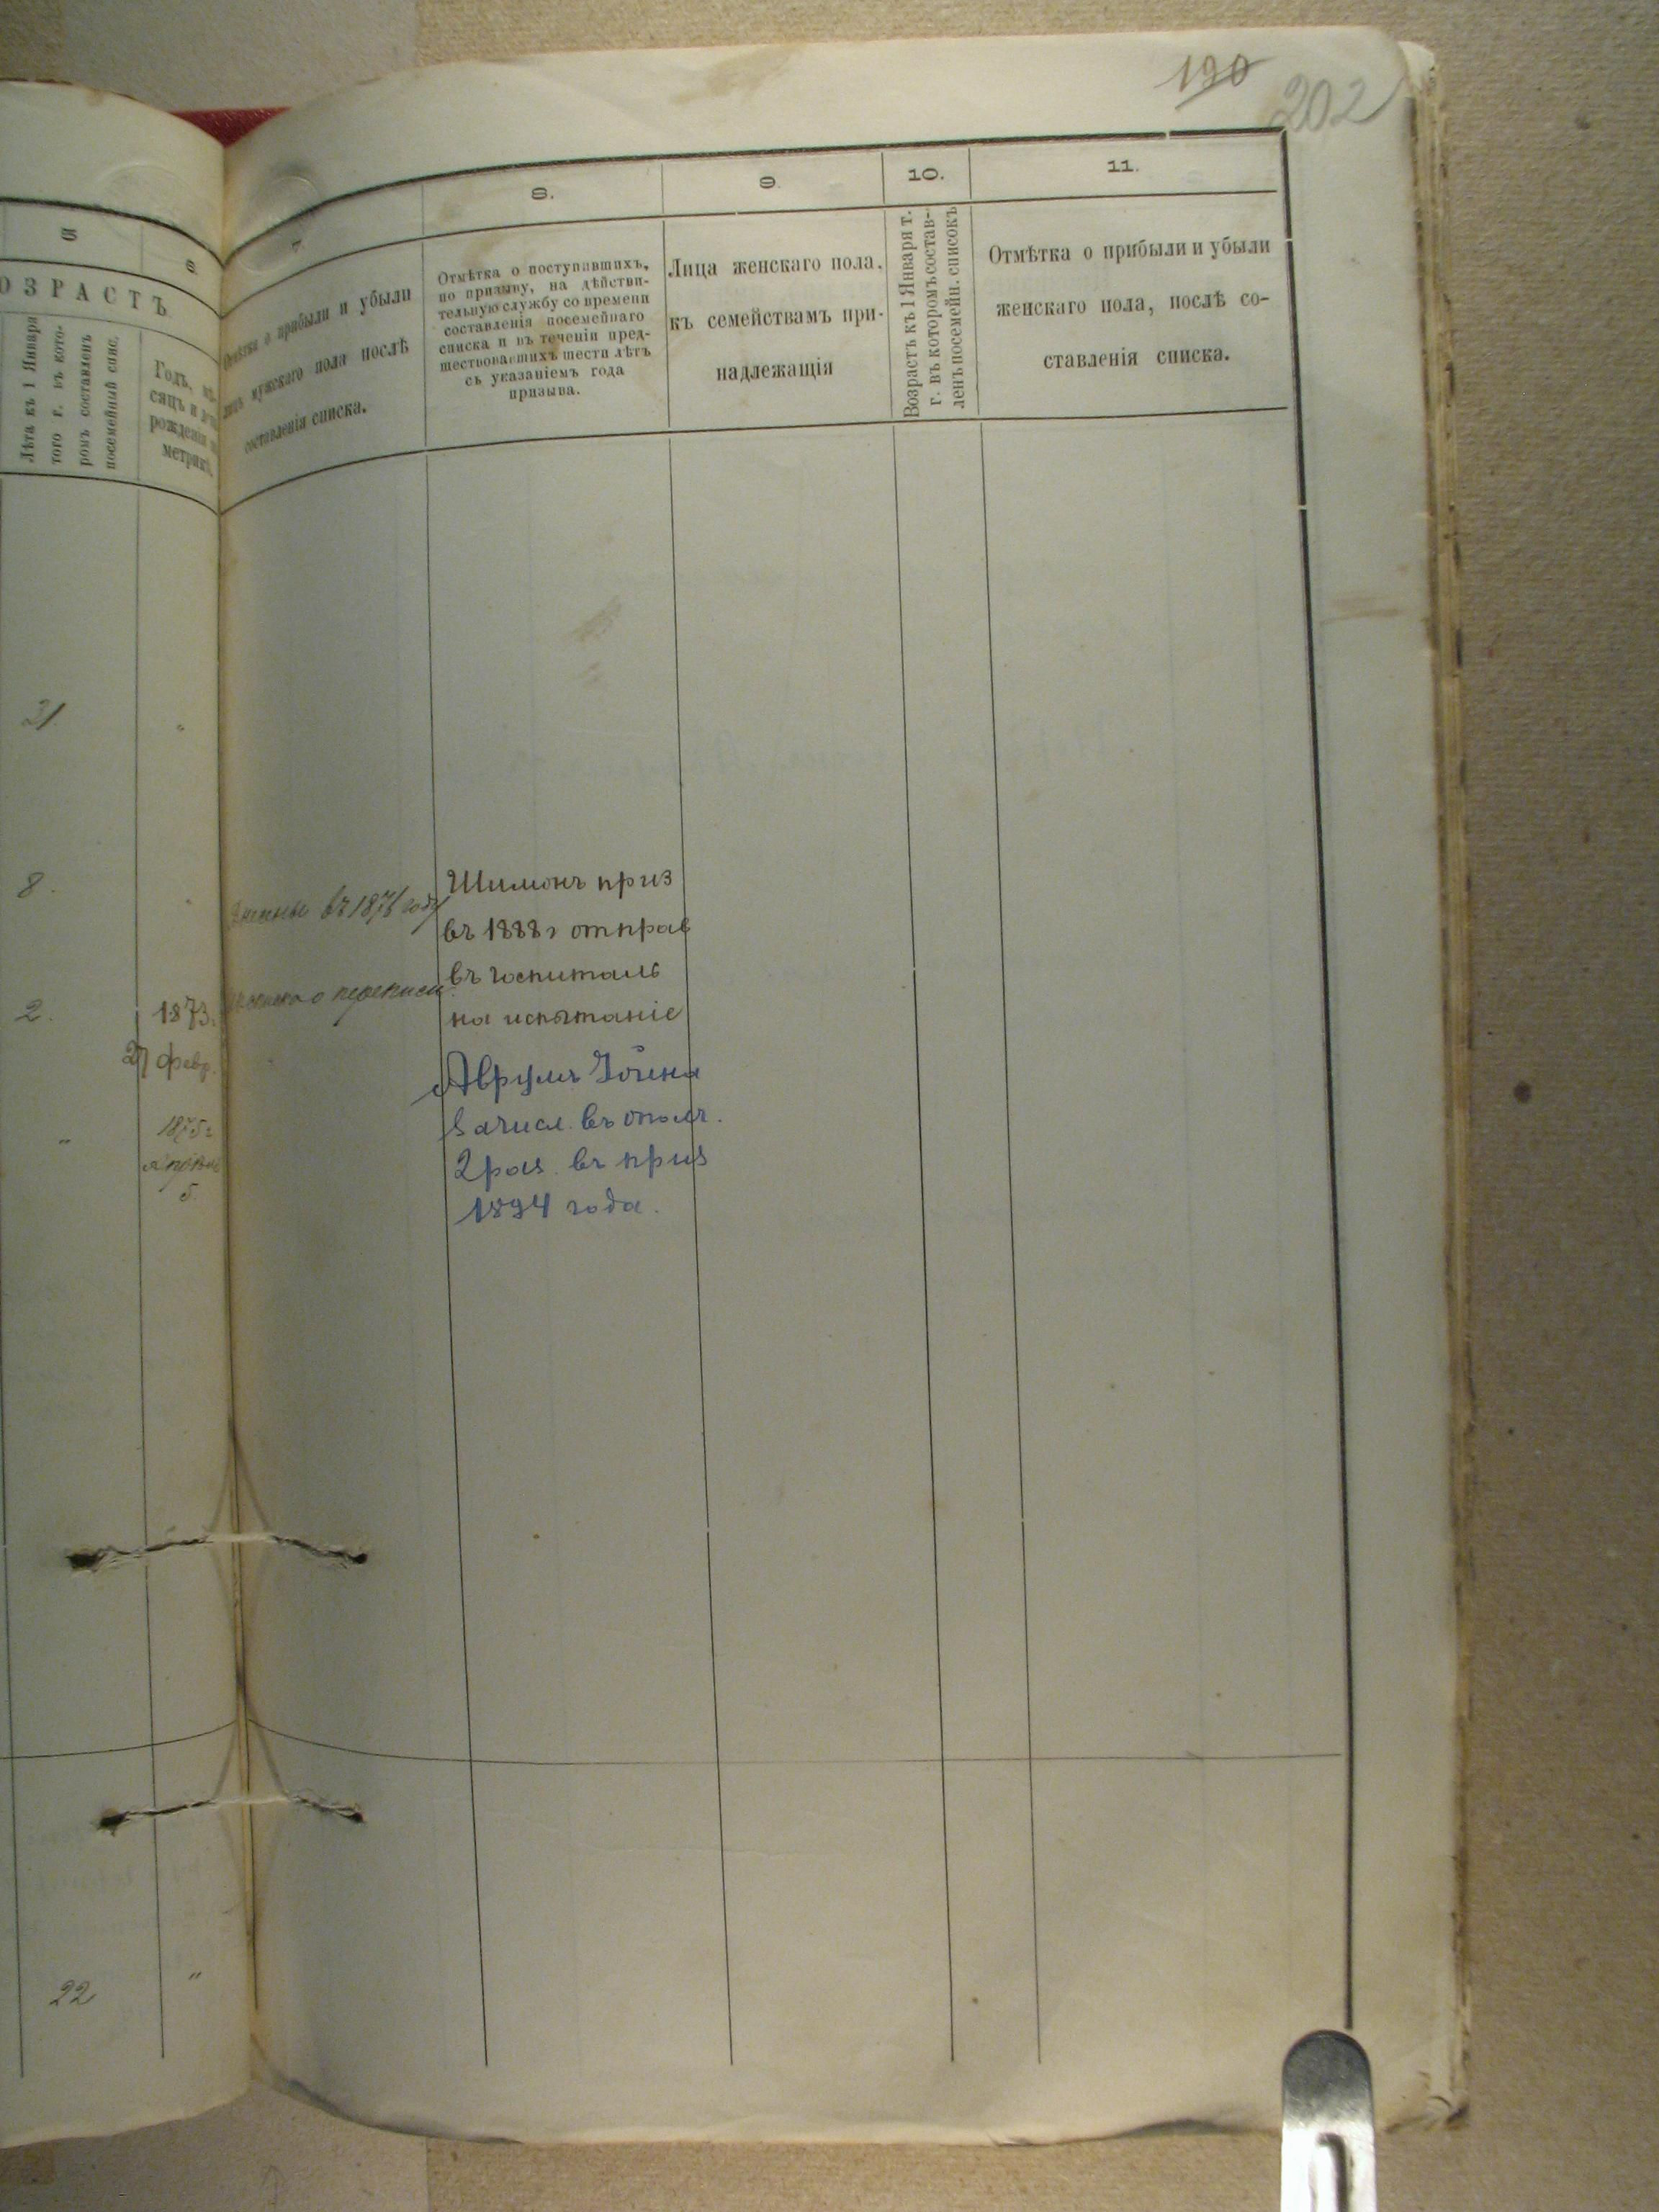 190
202
5
6.
ОЗРАСТЪ
Лѣта къ 1 Января
того г. въ кото-
ромъ составленъ
посемейный спис.
Годъ, мѣ-
сяцъ и
рожденія
метрик
7.
о прибыли и убыли
мужскаго пола послѣ
составленія списка.
8.
Отмѣтка о поступившихъ,
по призыву, на дѣйстви-
тельную службу со времени
составленія посемейнаго
списка и въ теченіи пред-
шествовавшихъ шести лѣтъ
съ указаніемъ года
призыва.
9.
Лица женскаго пола,
къ семействамъ при-
надлежащія
10.
Возрастъ къ 1 Января т.
г. въ которомъ состав-
ленъ посемейн. списокъ
11.
Отмѣтка о прибыли и убыли
женскаго пола, послѣ со-
ставленія списка.
31.
8.
2.
1873.
27 февр.
1875 г
апрѣля
5.
въ 1876 году
Шимонъ приз
въ 1888 г отправ
въ госпиталь
на испытаніе
Аврумъ
Зачисл. въ ополч.
2 раз. въ приз
1894 года.
22